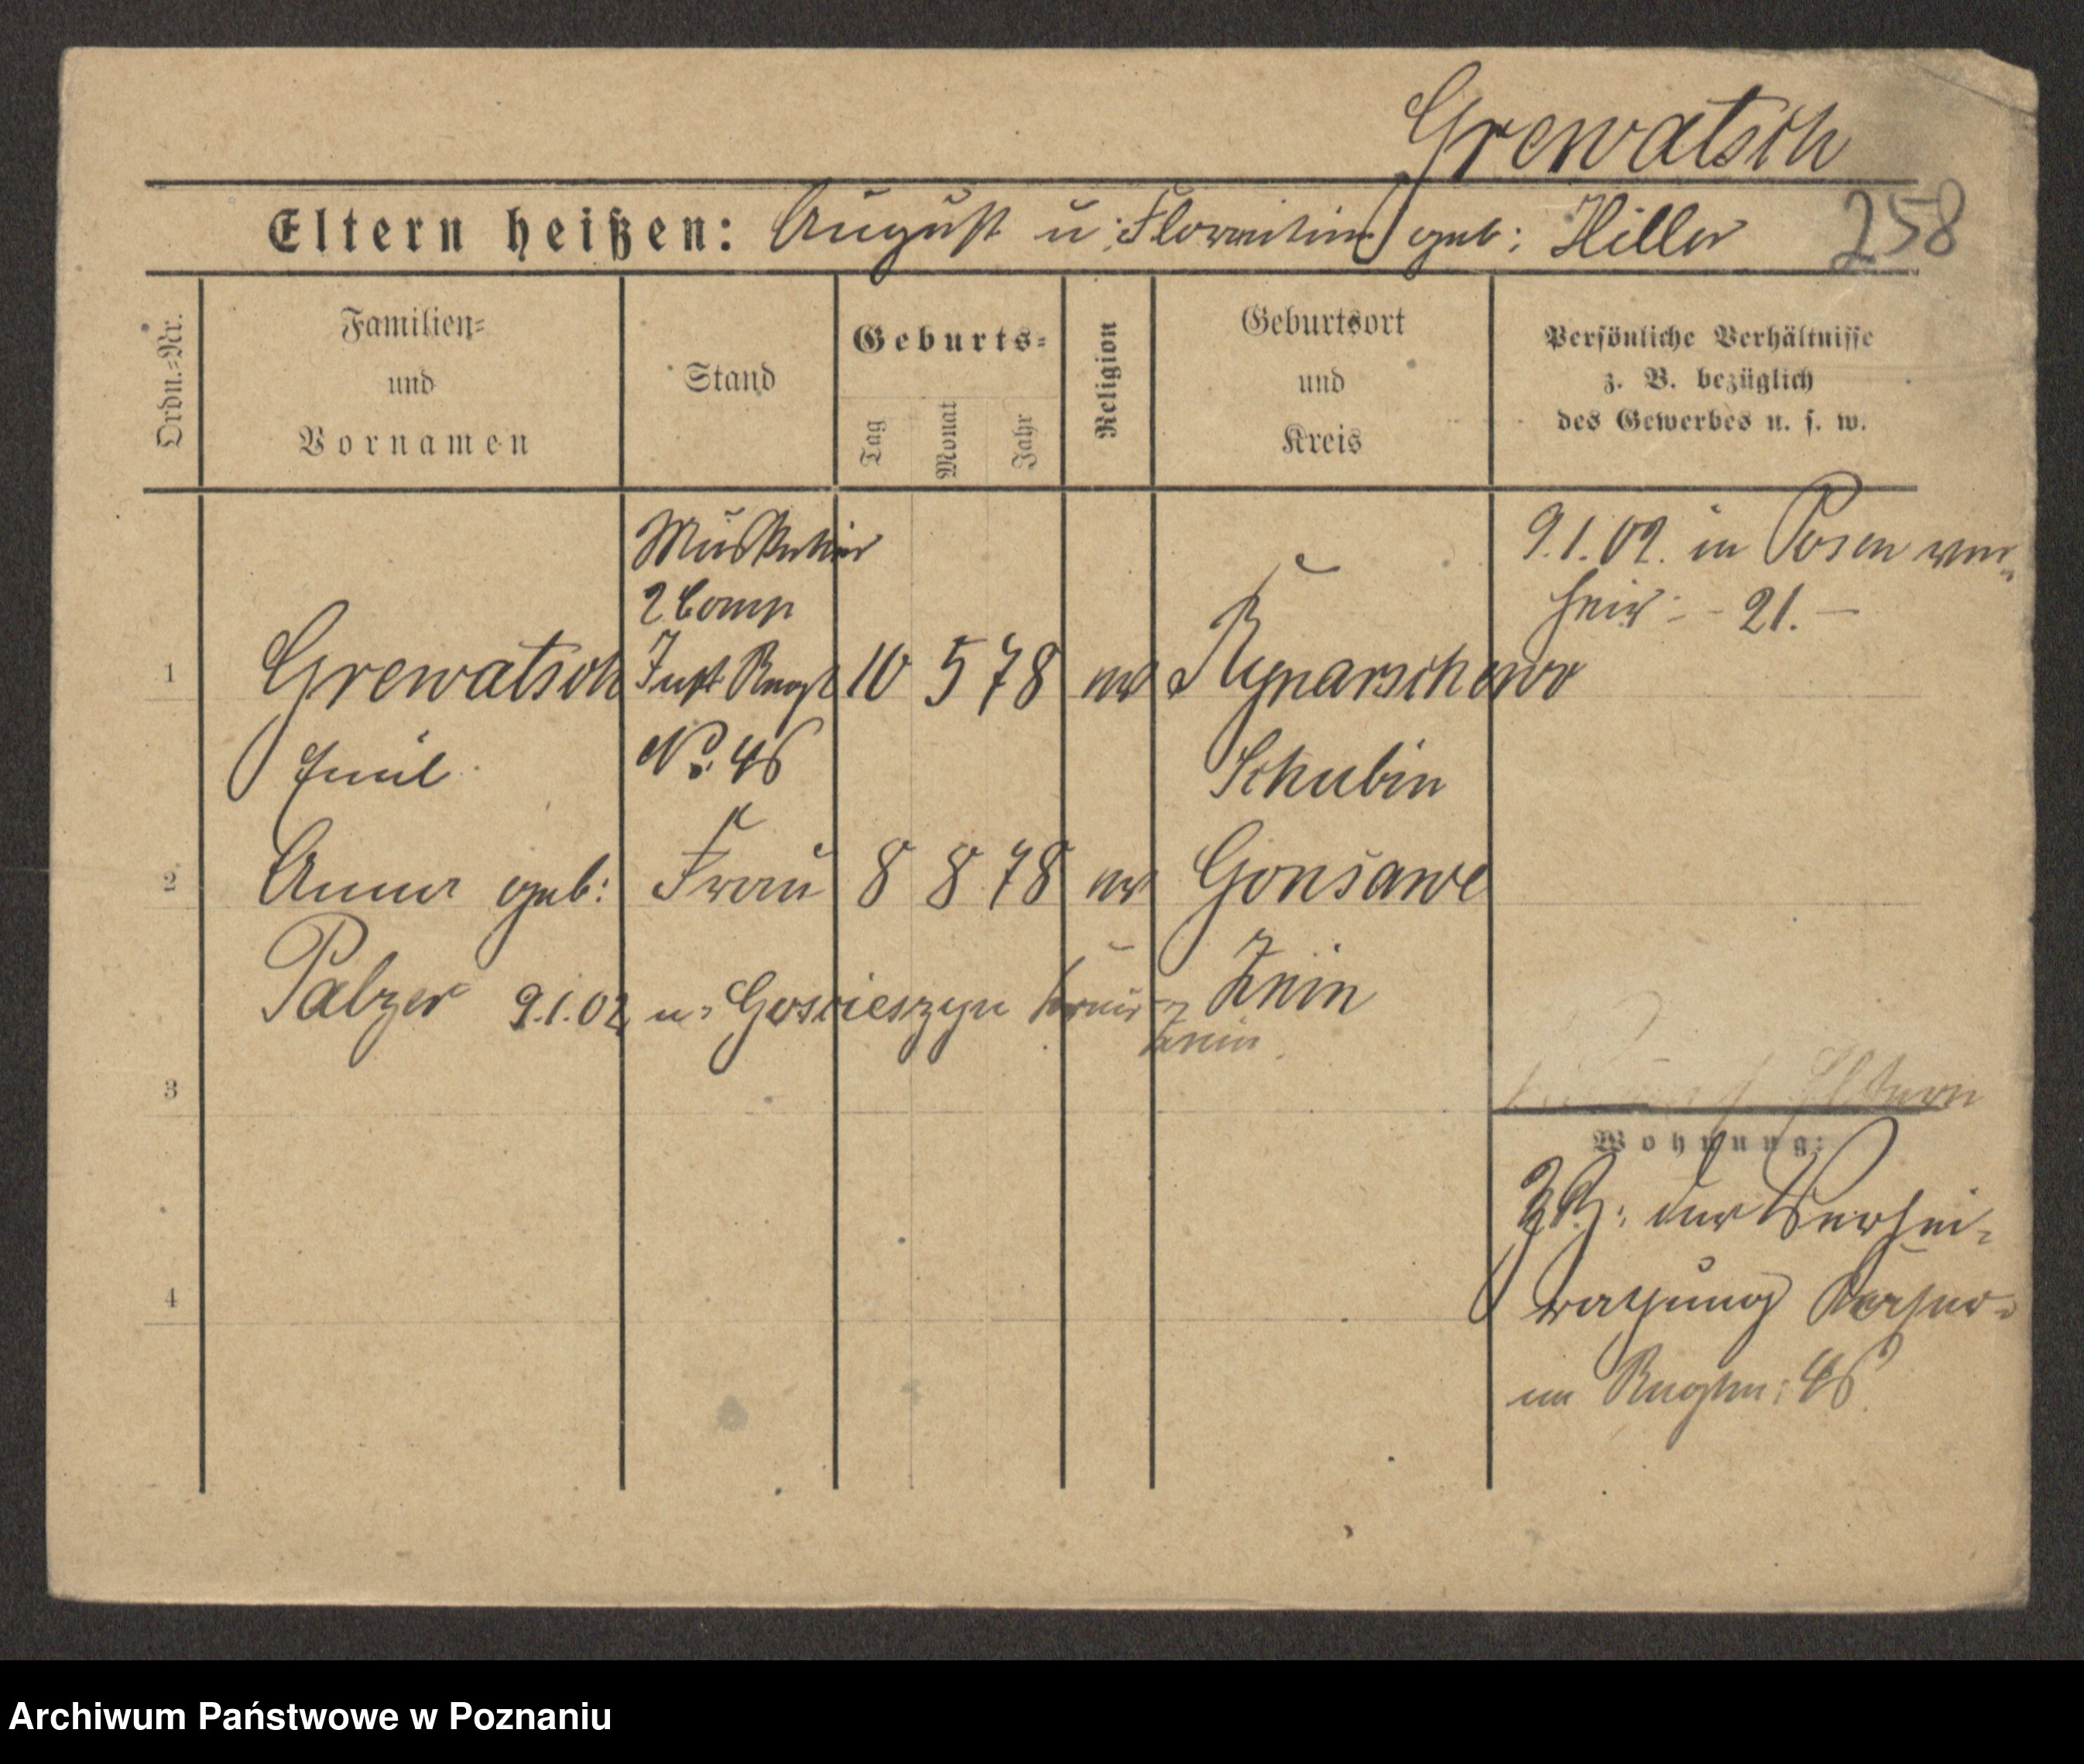 Grewatsch
Eltern heißen: August u: Florentine geb: Hiller 258
Ordn.=Nr.
Familien=
und
Vornamen
Stand
Geburts=
Tag
Monat
Jahr
Religion
Geburtsort
und
Kreis
Persönliche Verhältnisse
z. B. bezüglich
des Gewerbes u. s. w.
Musketier
2 Comp
9.1.02. in Posen ver=
heir: - 21. -
1 Grewatsch Inft Regt 10 5 78 ev Rynarschewo
Emil No. 46 Schubin
2 Anna geb: Frau 8 8 78 ev Gonsawe
Palzer 9.1.02 n: Goscieszyn Kreis Znin
Znin
3
Eltern
Wohnung:
Z. Z: der Verhei=
rathung Kaser=
ne Regtm: 46
4
Archiwum Państwowe w Poznaniu